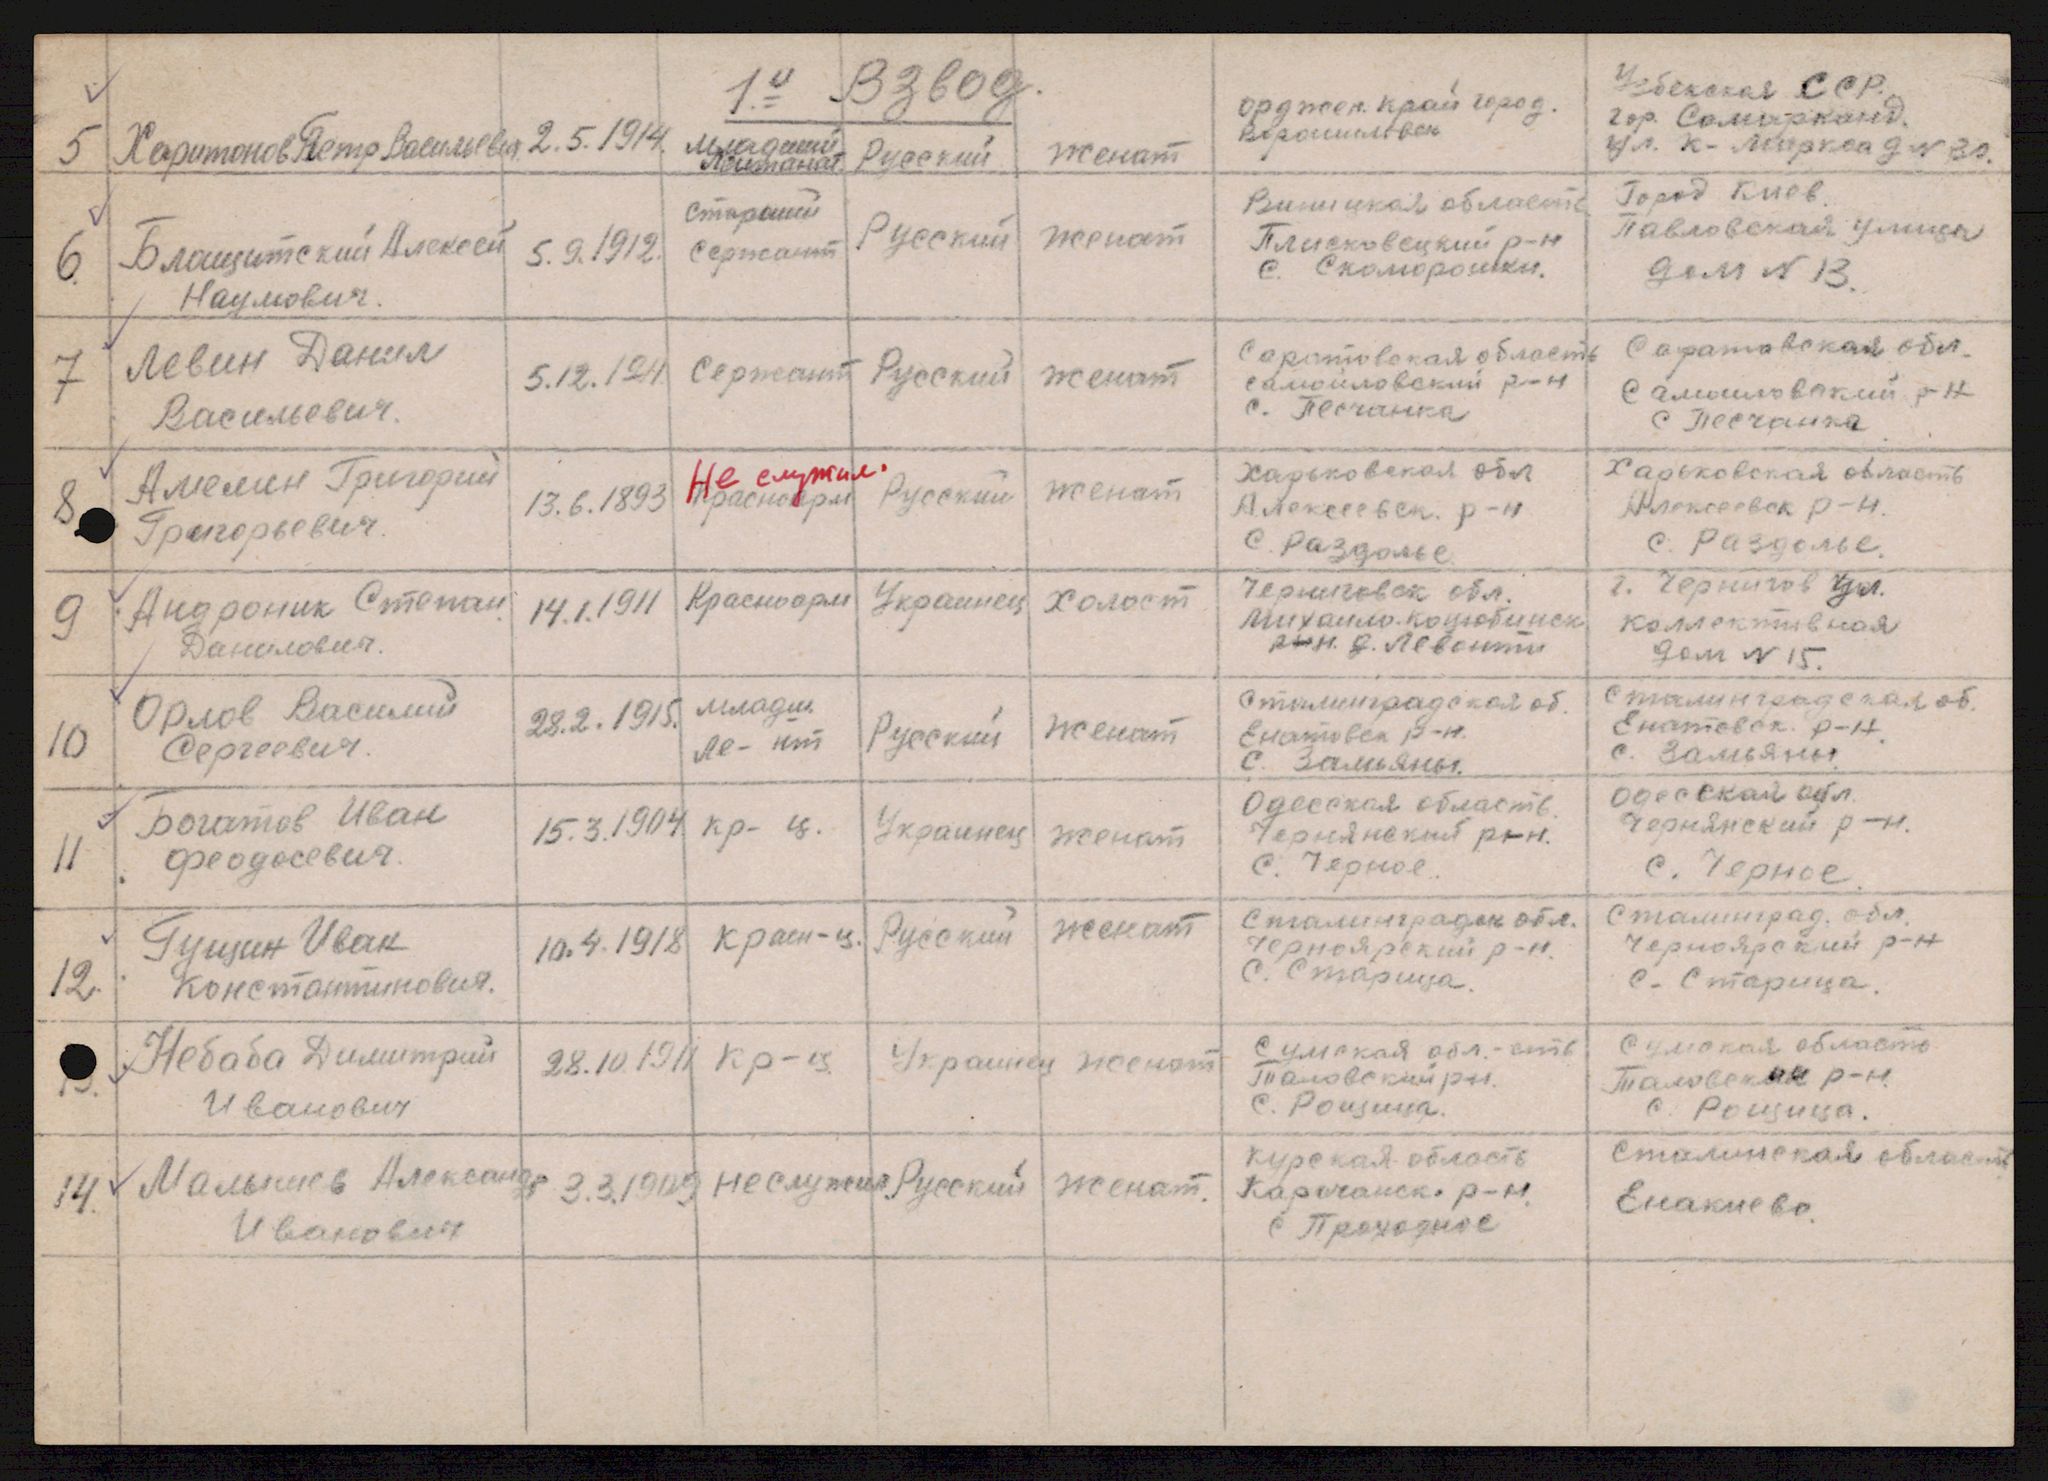 1.й Взвод.
5 Харитонов Петр Васильевич. 2.5.1914. Младший Лейтенант. Русский Женат
Орджен. Край город.
Ворошиловск
Узбекская ССР.
гор. Самарканд.
ул. К-Маркса д N 30.
6. Блащитский Алексей
Наумович.
5.9.1912.
Старший
Сержант
Русский Женат
Виницкая область
Плисковецкий р-н
С. Скоморошки.
Город Киев.
Павловская улица
дом N 13.
7 Левин Данил
Васильевич.
5.12. Сержант Русский Женат
Саратовская область
Самойловский р-н
с. Песчанка
Саратовская обл.
Самойловский р-н
с Песчанка
8 Амелин Григорий
Григорьевич.
13.6.1893
Не служил.
Красноарм Русский Женат
Харьковская обл
Алексеевск. р-н
С. Раздолье
Харьковская область
Алексеевск р-н.
с. Раздолье.
9 Андроник Степан.
Данилович.
14.1.1911 Красноарм Украинец Холост
Черниговск обл.
Михайло-Коцюбинск
р-н. д. Левонти
г. Чернигов ул.
Коллективная
дом N 15.
10 Орлов Василий
Сергеевич.
28.2.1915.
Младш.
Ле-нт
Русский Женат
Сталинградская об.
Енатовск р-н.
С. Замьяны.
Сталинградская об.
Енатовск. р-н.
с. Замьяны.
11 Богатов Иван
Феодосевич.
15.3.1904 кр-ц. Украинец женат
Одесская область.
Чернянский р-н.
С. Черное.
Одесская обл.
Чернянский р-н.
С. Черное.
12. Гущин Иван
Константинович.
10.4.1918 Красн-ц. Русский женат
Сталинградск обл.
Черноярский р-н.
С. Старица.
Сталинград. обл.
Черноярский р-н
с. Старица.
13. Небаба Димитрий
Иванович
28.10.1911 Кр-ц Украинец женат
Сумская обл.-сть
Таловский р-н.
С. Рощица.
Сумская область
Таловский р-н.
с. Рощица.
14. Малышев Александр
Иванович
3.3.1909 не служил. Русский Женат.
Курская область
Карочанск. р-н.
с Проходное
Сталинская область
Енакиево.